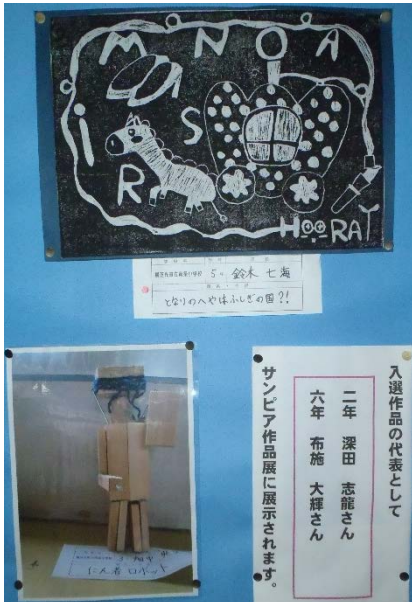 M N O A
i R S
HOORAY
5年 鈴木 七海
となりのへやはふしぎの国?!
入選作品の代表として
二年 深田 志龍さん
六年 布施 大輝さん
サンピア作品展に展示されます。